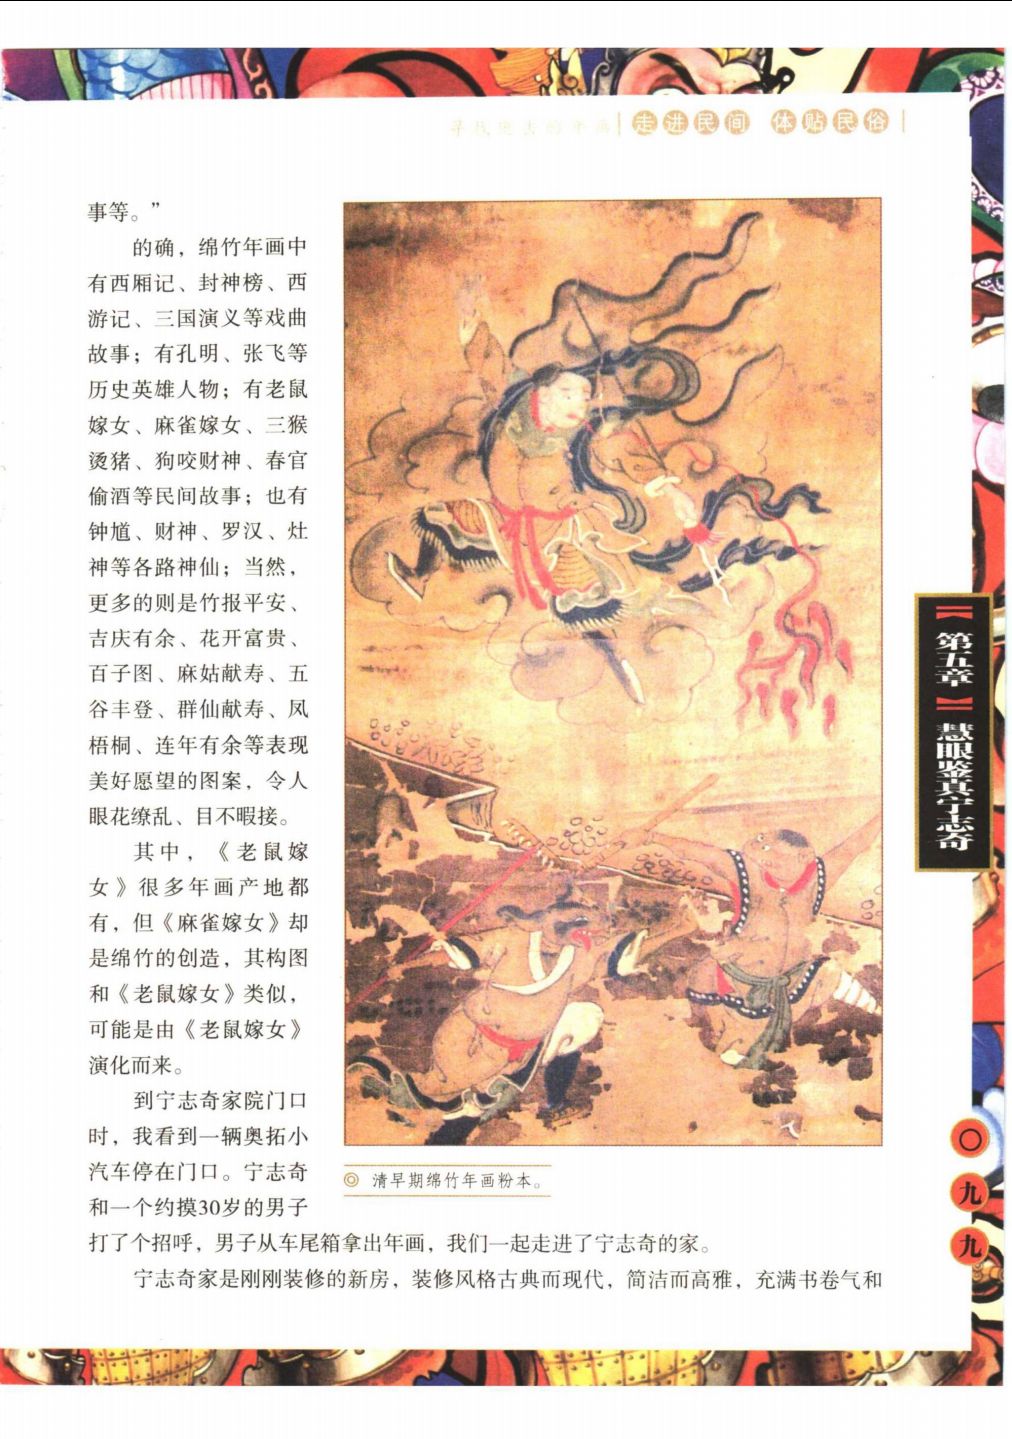 寻找逝去的年画 走进民间 体贴民俗
事等。”
的确，绵竹年画中
有西厢记、封神榜、西
游记、三国演义等戏曲
故事；有孔明、张飞等
历史英雄人物；有老鼠
嫁女、麻雀嫁女、三猴
烫猪、狗咬财神、春官
偷酒等民间故事；也有
钟馗、财神、罗汉、灶
神等各路神仙；当然，
更多的则是竹报平安、
吉庆有余、花开富贵、
百子图、麻姑献寿、五
谷丰登、群仙献寿、凤
梧桐、连年有余等表现
美好愿望的图案，令人
眼花缭乱、目不暇接。
其中，《老鼠嫁
女》很多年画产地都
有，但《麻雀嫁女》却
是绵竹的创造，其构图
和《老鼠嫁女》类似，
可能是由《老鼠嫁女》
演化而来。
到宁志奇家院门口
时，我看到一辆奥拓小
汽车停在门口。宁志奇
和一个约摸30岁的男子
打了个招呼，男子从车尾箱拿出年画，我们一起走进了宁志奇的家。
宁志奇家是刚刚装修的新房，装修风格古典而现代，简洁而高雅，充满书卷气和
◎ 清早期绵竹年画粉本。
【第五章】慧眼鉴真宁志奇
〇九九